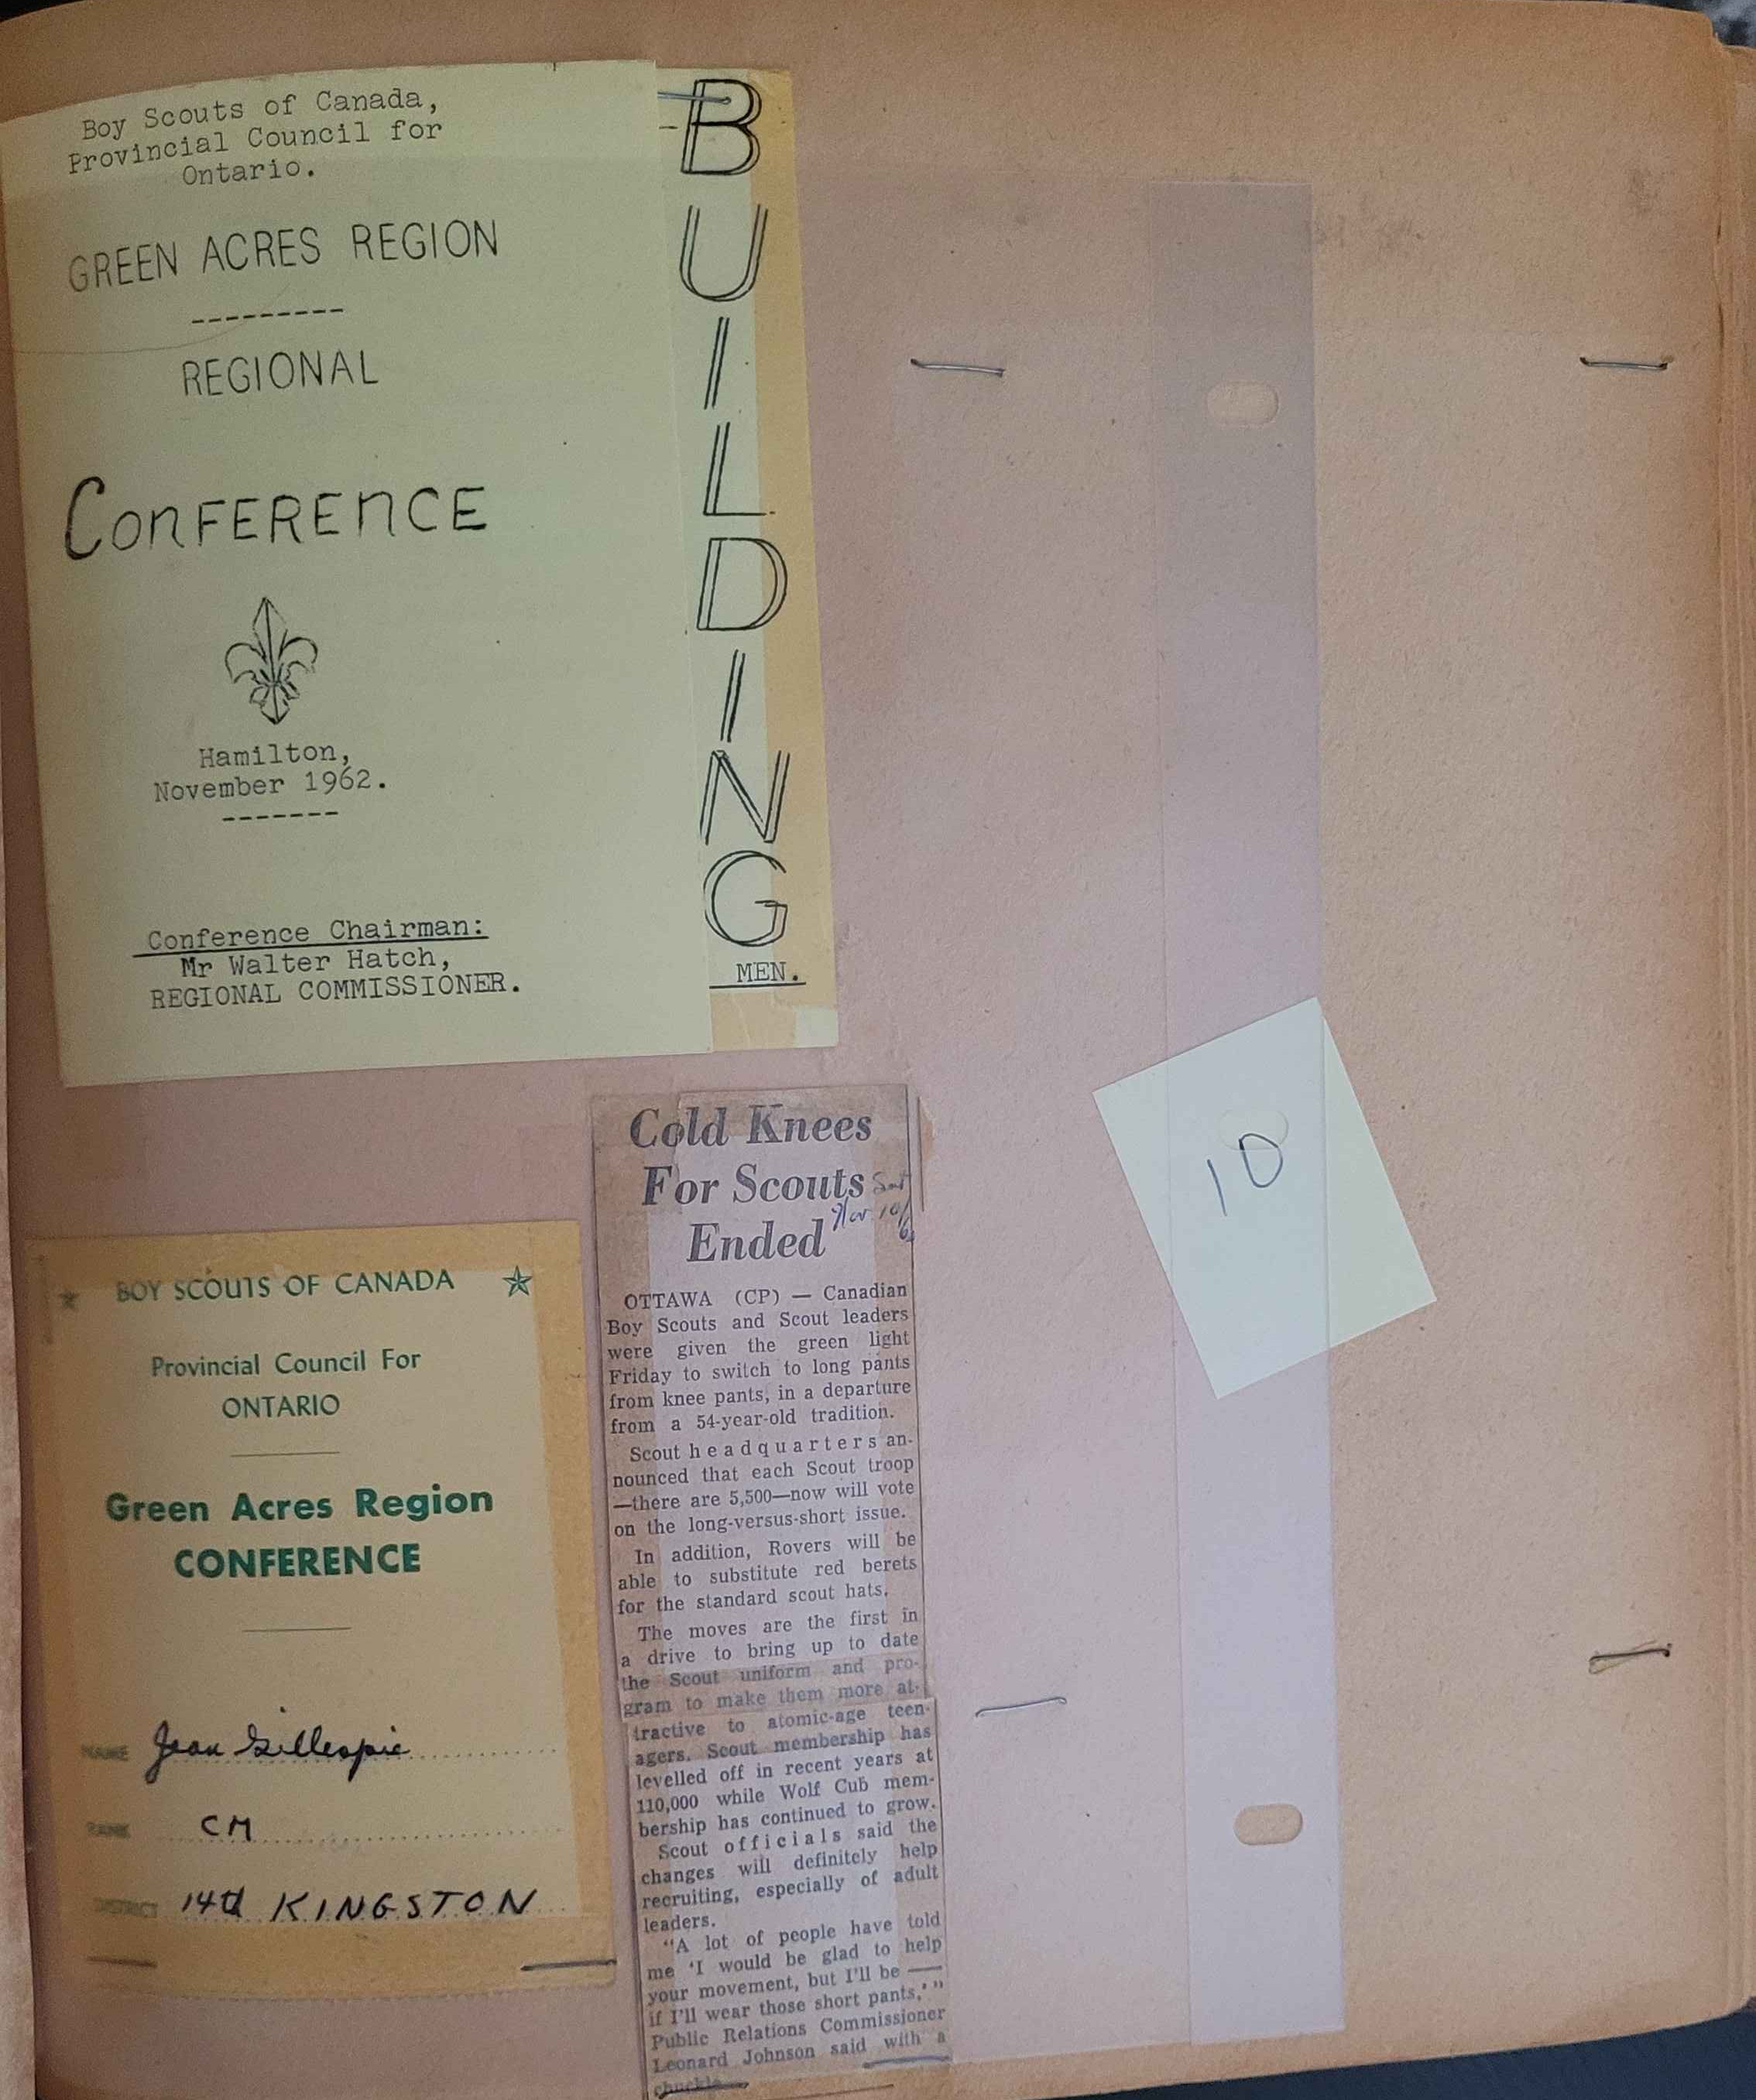 Boy Scouts of Canada,
Provincial Council for
Ontario.
GREEN ACRES REGION
---------
REGIONAL
CONFERENCE
Hamilton,
November 1962.
-------
Conference Chairman:
Mr Walter Hatch,
REGIONAL COMMISSIONER.
B
U
I
L
D
I
N
G
MEN.
BOY SCOUTS OF CANADA
Provincial Council For
ONTARIO
Green Acres Region
CONFERENCE
NAME Jean Gillespie
RANK CM
DISTRICT 14th KINGSTON
Cold Knees
For Scouts
Ended
Sat
Nov. 10/6
OTTAWA (CP) — Canadian
Boy Scouts and Scout leaders
were given the green light
Friday to switch to long pants
from knee pants, in a departure
from a 54-year-old tradition.
Scout headquarters an-
nounced that each Scout troop
—there are 5,500—now will vote
on the long-versus-short issue.
In addition, Rovers will be
able to substitute red berets
for the standard scout hats.
The moves are the first in
a drive to bring up to date
the Scout uniform and pro-
gram to make them more at-
tractive to atomic-age teen-
agers. Scout membership has
levelled off in recent years at
110,000 while Wolf Cub mem-
bership has continued to grow.
Scout officials said the
changes will definitely help
recruiting, especially of adult
leaders.
"A lot of people have told
me 'I would be glad to help
your movement, but I'll be —
if I'll wear those short pants,' "
Public Relations Commissioner
Leonard Johnson said with a
chuckle.
10